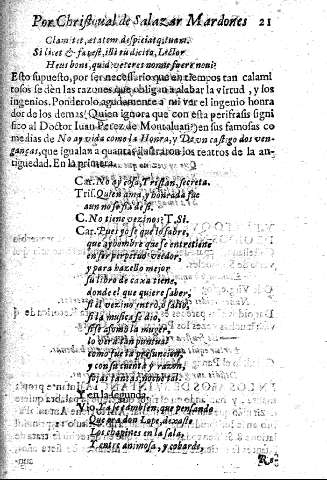 Por Christoual de Salazar Mardones 21
Clamitet, ætatem despiciatq; tuam.
Si licet & fas est, illi tu dicito, Lector
Heus bone, quid veteres nonne fuere noui?
Esto supuesto, por ser necessario que en tiempos tan calami
tosos se dèn las razones que obligan a alabar la virtud, y los
ingenios. Ponderolo agudamente a mi ver el ingenio honra
dor de los demas: Quien ignora que con esta perifrasis signi
fico al Doctor Iuan Perez de Montaluan? en sus famosas co
medias de No ay vida como la Honra, y De un castigo dos ven-
ganças, que igualan a quantas ilustraron los teatros de la an-
tiguedad. En la primera.
Car. No ay cosa, Tristan, secreta.
Tris. Quien ama, y honrada fue
aun no se fia de si.
C. No tiene vezinos? T. Si.
Car. Pues yo se que lo sabre,
que ay hombre que se entretiene
en ser perpetuo veedor,
y para hazello mejor
su libro de caxa tiene,
donde el que quiere saber,
si el vezino entrò, o saliò,
si la musica se dio,
si se assomo la muger,
lo verà tan puntual
como fue la presuncion,
y con su cuenta y razon,
fojas tantas, noche tal.
Y en la segunda.
Vio. La se tambien, que pensando
Que era don Lope, dexaste
Los chapines en la sala,
Y entre animosa, y cobarde,